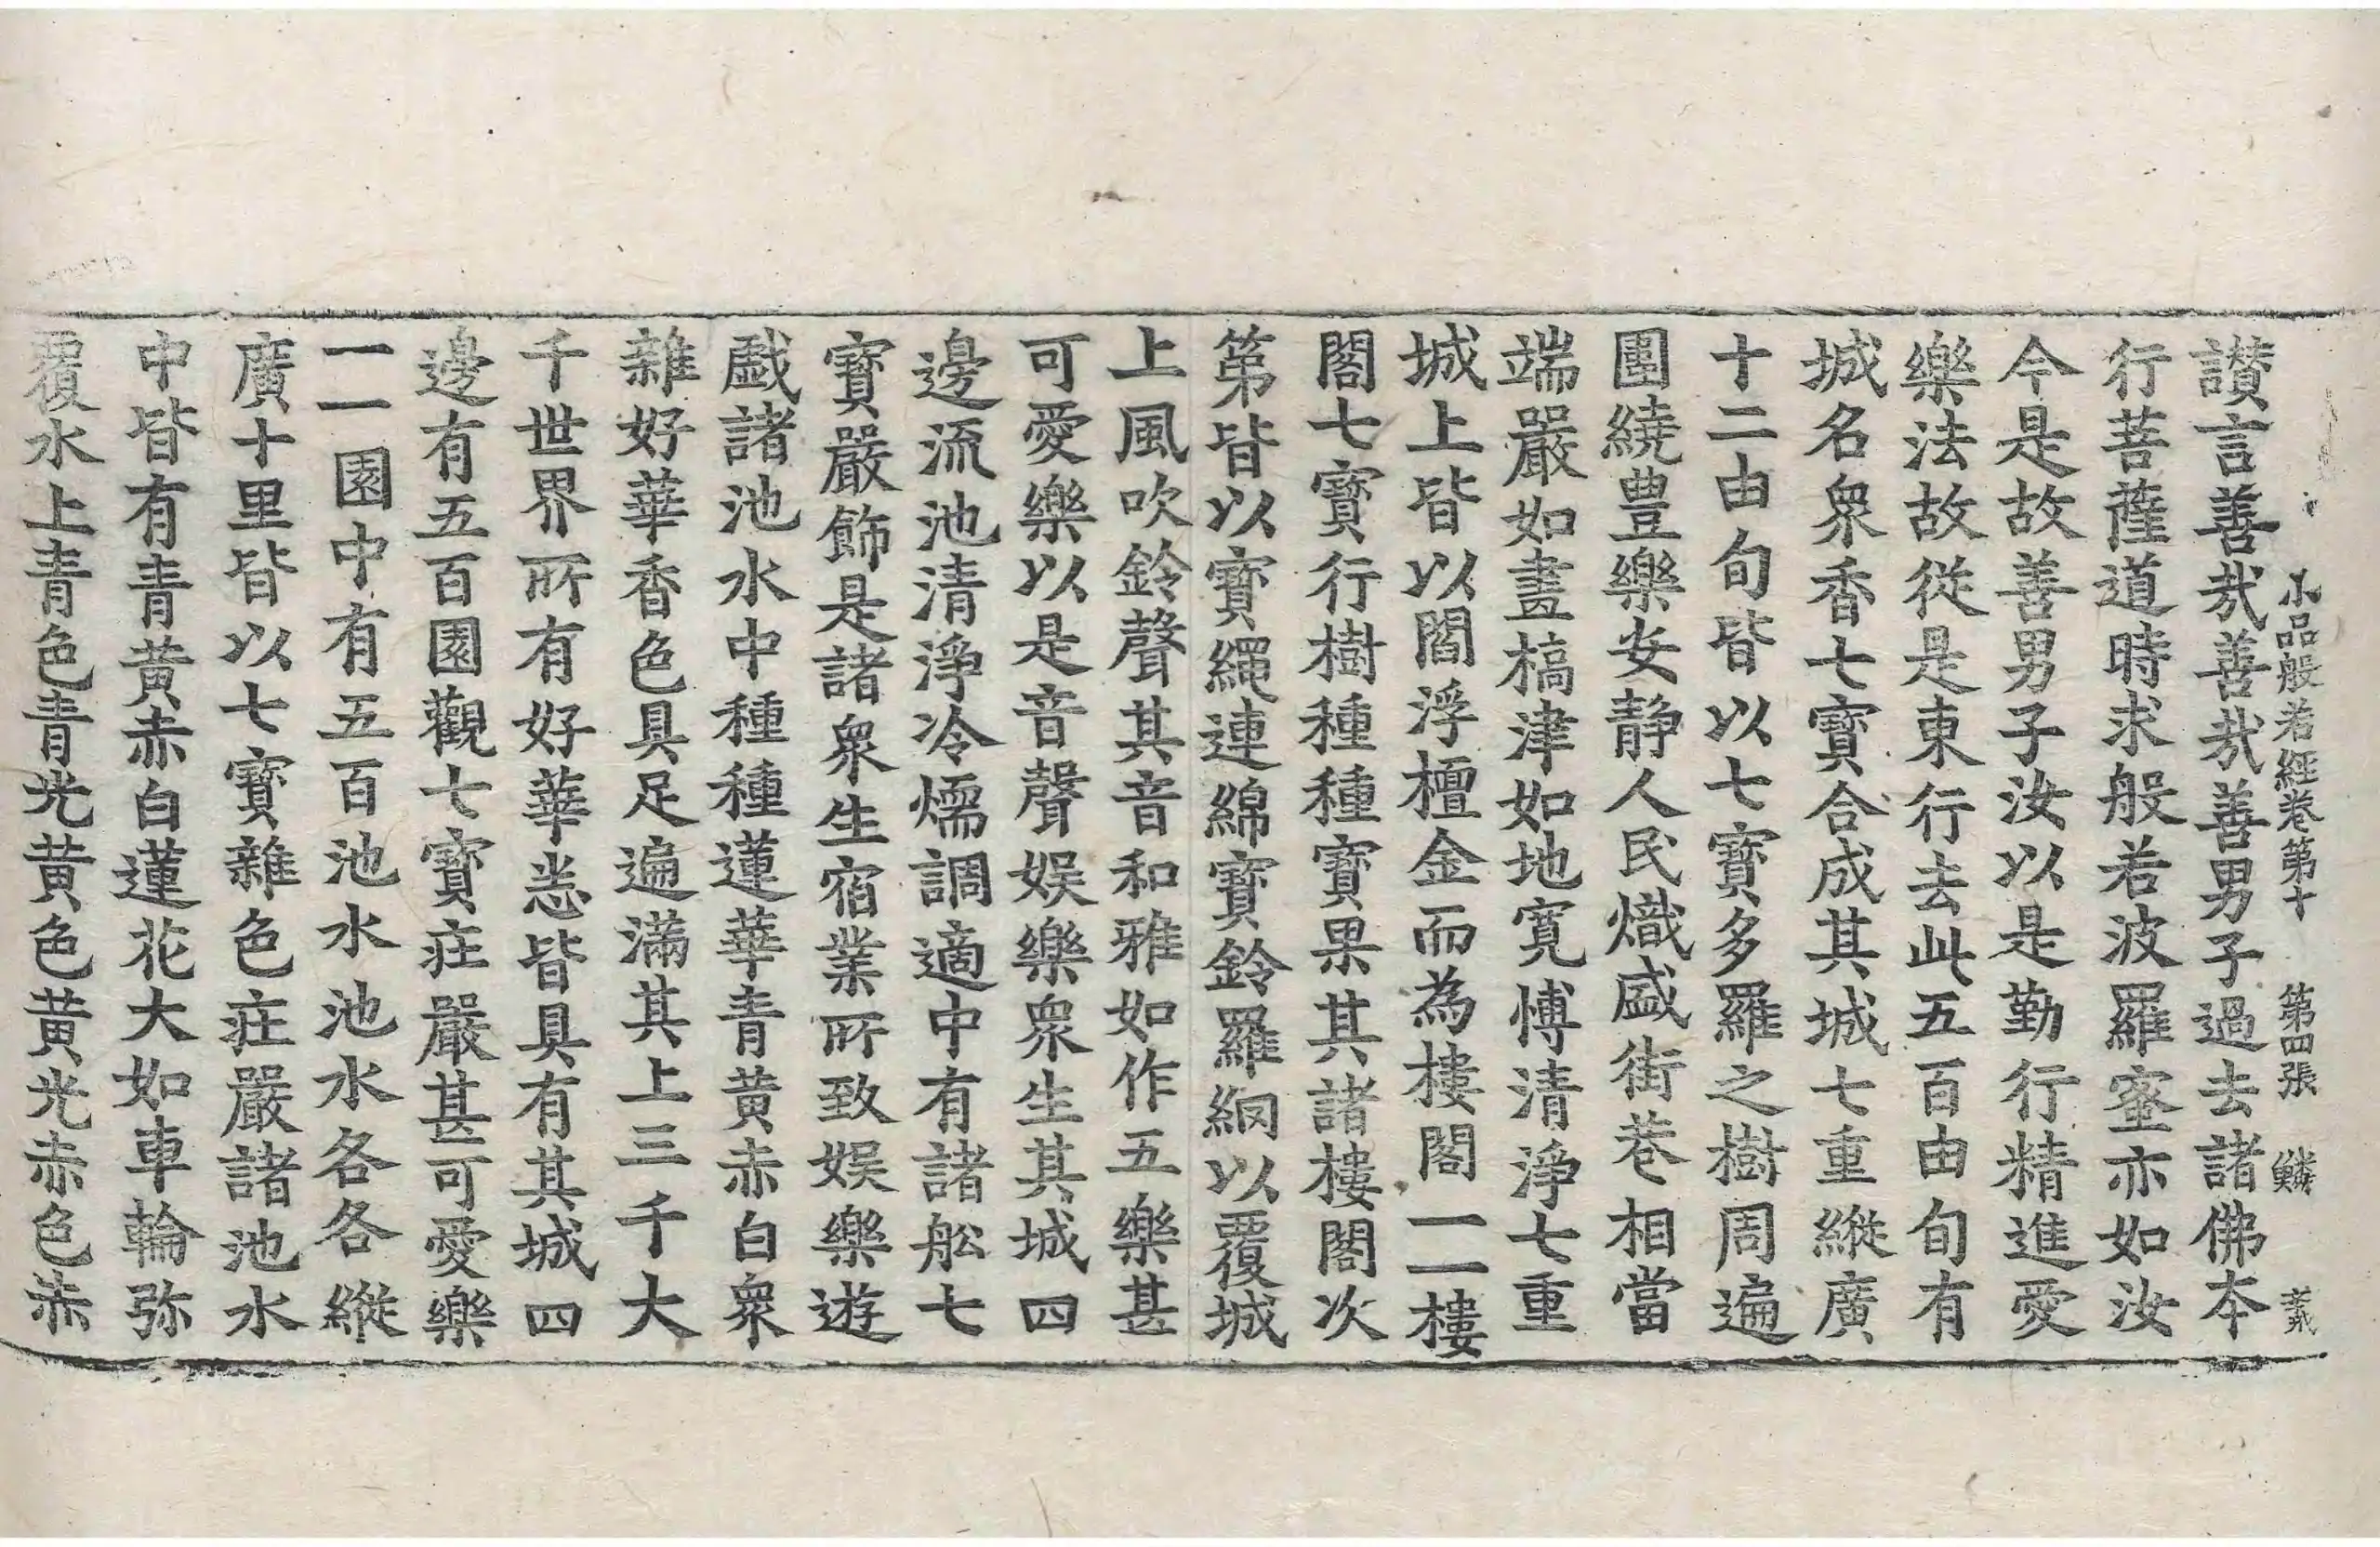 小品般若經卷第十　第四張　鱗　義
讃言善哉善哉善男子過去諸佛本
行菩薩道時求般若波羅蜜亦如汝
今是故善男子汝以是勤行精進愛
樂法故從是東行去此五百由旬有
城名衆香七寶合成其城七重縱廣
十二由旬皆以七寶多羅之樹周遍
圍繞豊樂安静人民熾盛街巷相當
端嚴如畫槗津如地寛愽清淨七重
城上皆以閻浮檀金而為樓閣一一樓
閣七寶行樹種種寶果其諸樓閣次
第皆以寶繩連綿寶鈴羅網以覆城
上風吹鈴聲其音和雅如作五樂甚
可愛樂以是音聲娱樂衆生其城四
邊流池清淨冷煗調適中有諸舩七
寶嚴飾是諸衆生宿業所致娱樂遊
戲諸池水中種種蓮華青黄赤白衆
雜好華香色具足遍滿其上三千大
千世界所有好華悉皆具有其城四
邊有五百園觀七寶莊嚴甚可愛樂
一一園中有五百池水池水各各縱
廣十里皆以七寶雜色莊嚴諸池水
中皆有青黄赤白蓮花大如車輪弥
覆水上青色青光黄色黄光赤色赤